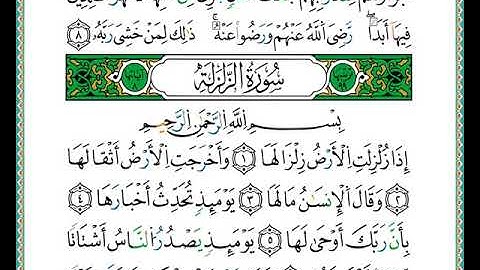 فِيهَا أَبَدًا ۖ رَّضِيَ اللَّهُ عَنْهُمْ وَرَضُوا عَنْهُ ۚ ذَٰلِكَ لِمَنْ خَشِيَ رَبَّهُ ﴿٨﴾
سُورَةُ الزَّلْزَلَةِ
بِسْمِ اللَّهِ الرَّحْمَٰنِ الرَّحِيمِ
إِذَا زُلْزِلَتِ الْأَرْضُ زِلْزَالَهَا ﴿١﴾ وَأَخْرَجَتِ الْأَرْضُ أَثْقَالَهَا
﴿٢﴾ وَقَالَ الْإِنسَٰنُ مَا لَهَا ﴿٣﴾ يَوْمَئِذٍ تُحَدِّثُ أَخْبَارَهَا ﴿٤﴾
بِأَنَّ رَبَّكَ أَوْحَىٰ لَهَا ﴿٥﴾ يَوْمَئِذٍ يَصْدُرُ النَّاسُ أَشْتَاتًا